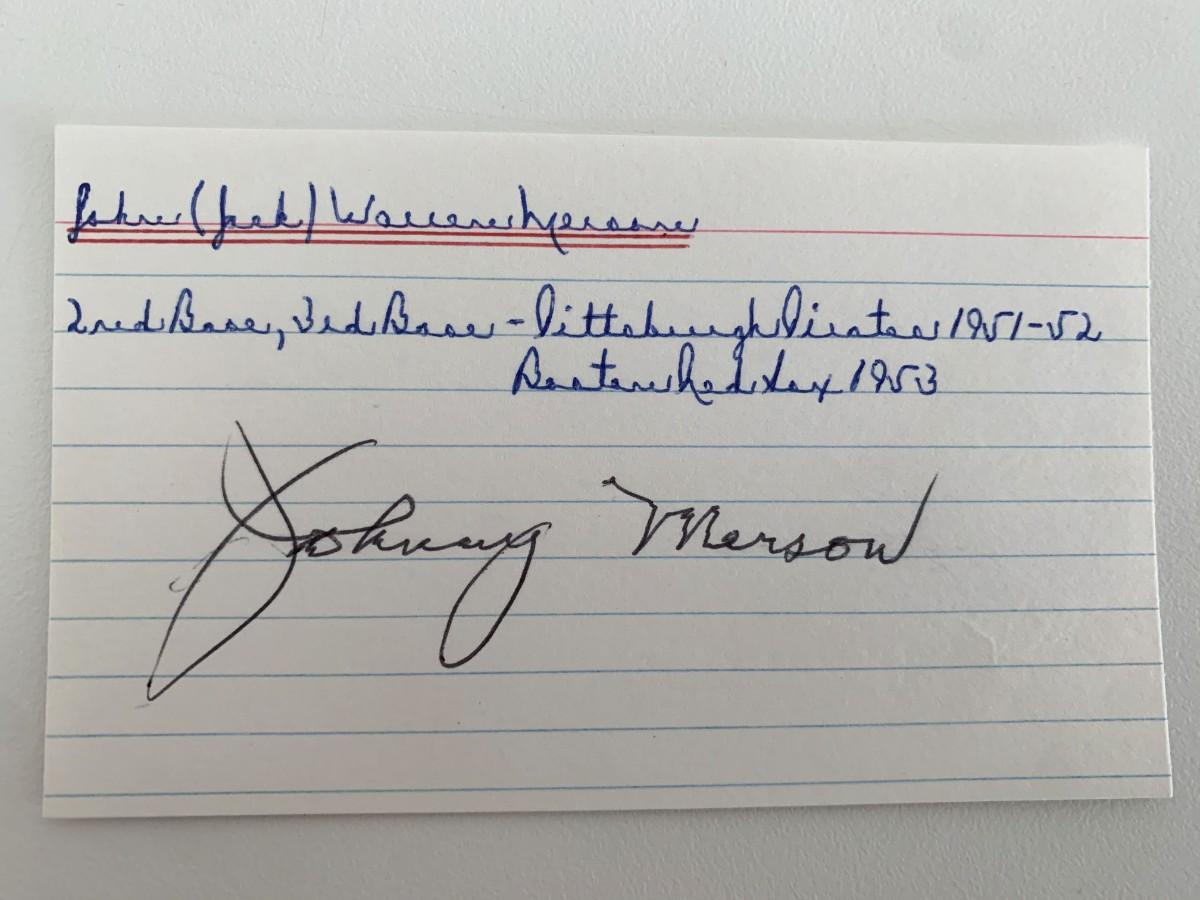 John (Jack) Warren Merson
2nd Base, 3rd Base - Pittsburgh Pirates 1951-52
Boston Red Sox 1953
Johnny Merson